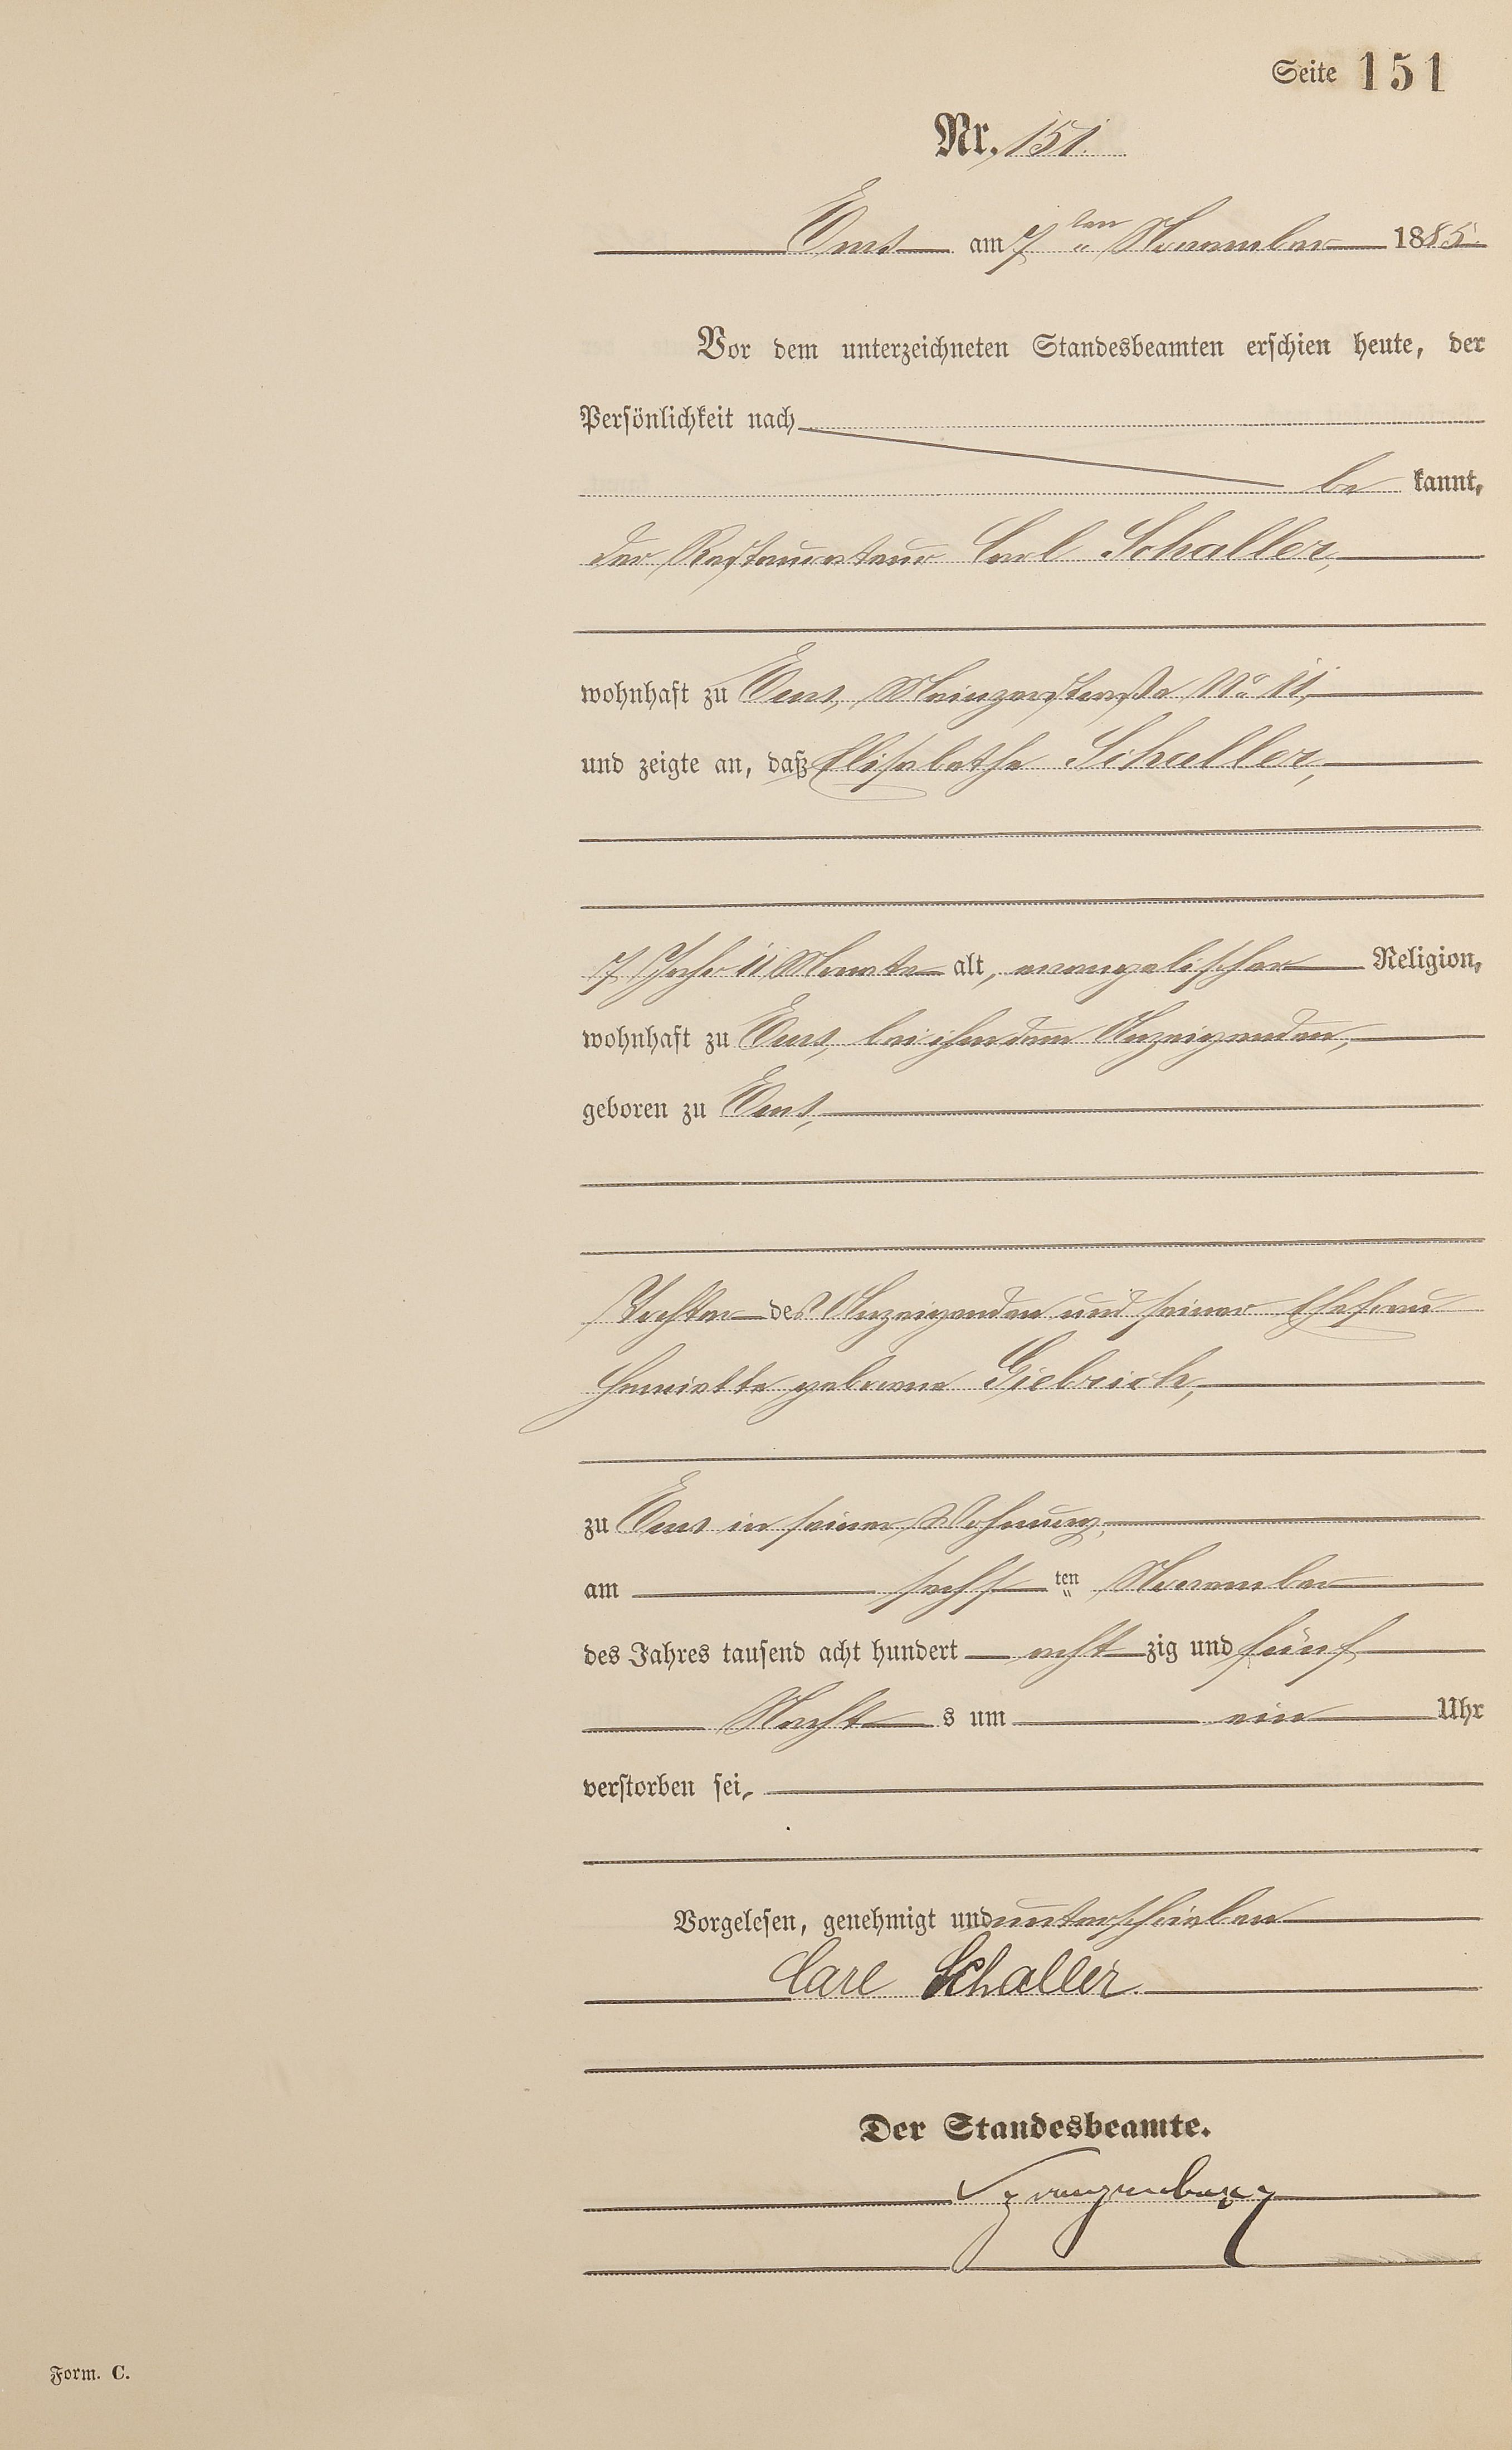 Seite 151
Nr. 151.
Ems am 7ten November 1885.
Vor dem unterzeichneten Standesbeamten erschien heute, der
Persönlichkeit nach
be kannt,
der Restaurateur Carl Schaller,
wohnhaft zu Ems, Mainzerstraße No 11,
und zeigte an, daß Elisabethe Schaller,
7 Jahr 11 Monate alt, evangelischer Religion,
wohnhaft zu Ems, bei ihm dem Anzeigenden,
geboren zu Ems,
Tochter des Anzeigenden und seiner Ehefrau
Henriette geborene Giebrich,
zu Ems in seiner Wohnung,
am sechsten November
des Jahres tausend acht hundert acht zig und fünf
Nacht s um ein Uhr
verstorben sei.
Vorgelesen, genehmigt und unterschrieben
Carl Schaller.
Der Standesbeamte.
Form. C.